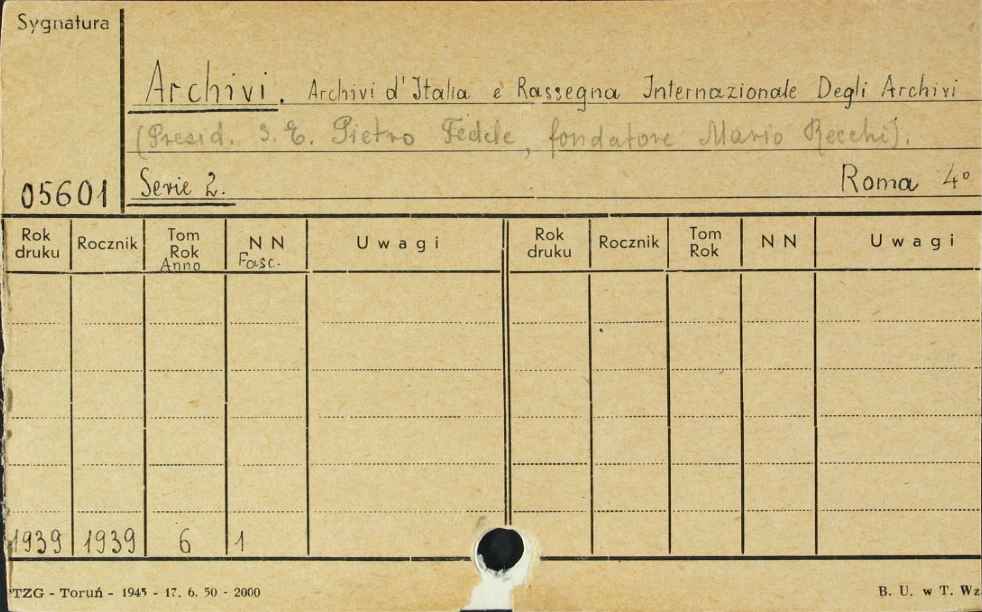 Sygnatura
Archivi. Archivi d'Italia e Rassegna Internazionale Degli Archivi
(Presid. S. E. Pietro Fedele, fondatore Mario Recchi).
05601 Serie 2. Roma 4°
Rok druku Rocznik Tom Rok Anno NN Fasc. Uwagi Rok druku Rocznik Tom Rok NN Uwagi
1939 1939 6 1
TZG - Toruń - 1945 - 17. 6. 50 - 2000 B. U. w T. Wz